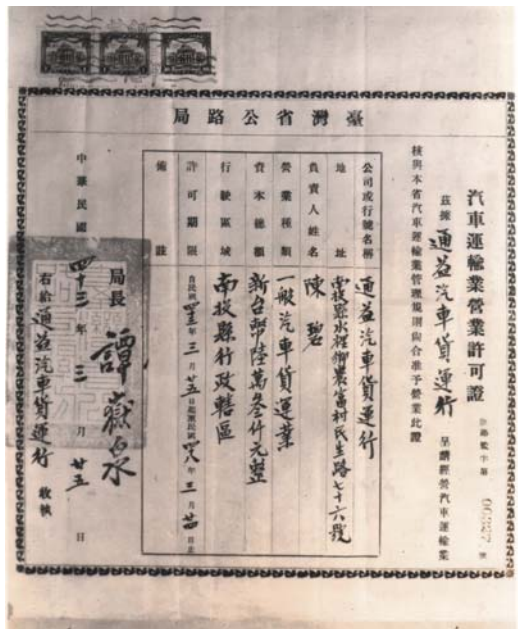 臺灣省公路局
汽車運輸業營業許可證
茲據 通益汽車貨運行 呈請經營汽車運輸業
核與本省汽車運輸業管理規則尙合准予營業此證
公司或行號名稱 通益汽車貨運行
地址 南投縣水裡鄉農富村民生路七十六號
負責人姓名 陳碧
營業種類 一般汽車貨運業
資本總額 新台幣陸萬叁仟元整
行駛區域 南投縣行政轄區
許可期限 自民國 年三月廿五日起至民國 年三月 日止
備註
局長 譚嶽泉
右給 通益汽車貨運行 收執
中華民國四十三年三月廿五日